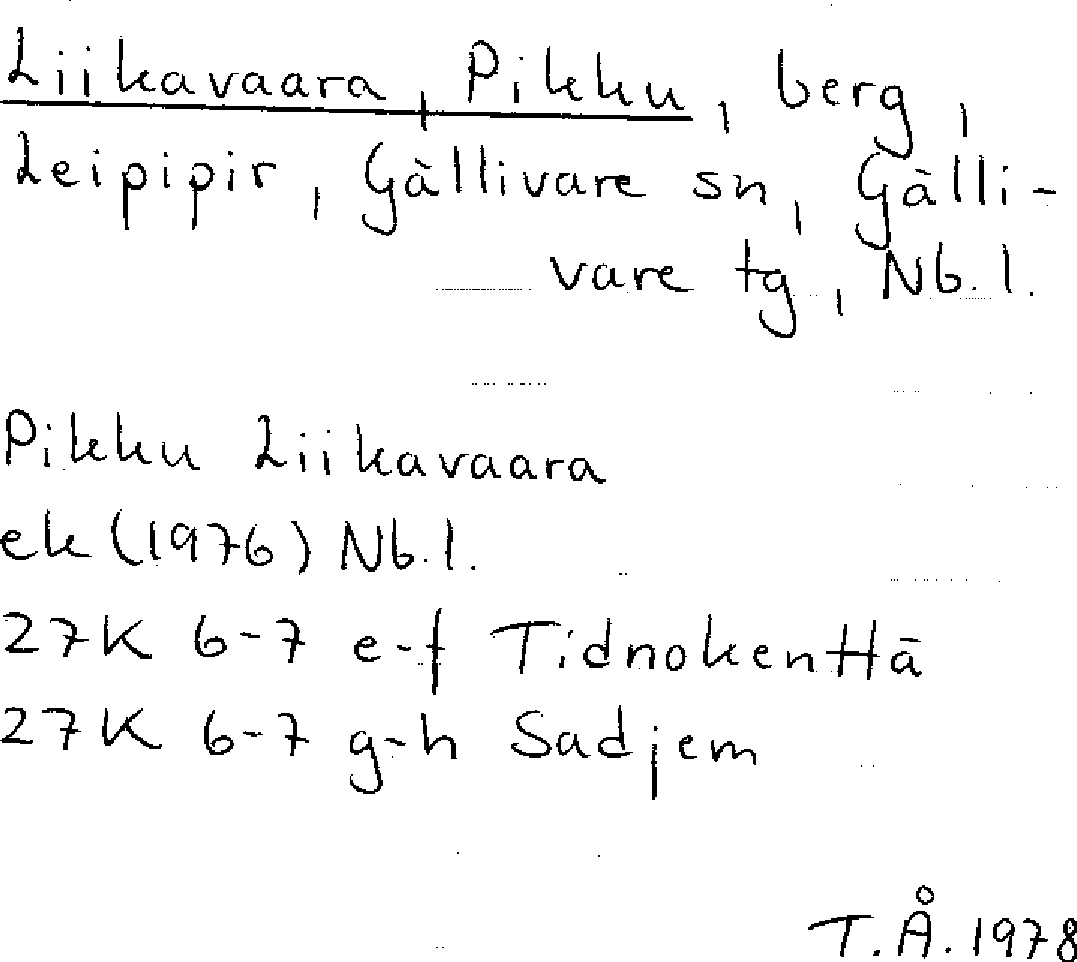 Liikavaara, Pikku, berg,
Leipipir, Gällivare sn, Gälli-
vare tg, Nb.l.
Pikku Liikavaara
ek (1976) Nb.l.
27K 6-7 e-f Tidnokenttä
27K 6-7 g-h Sadjem
T.Å. 1978